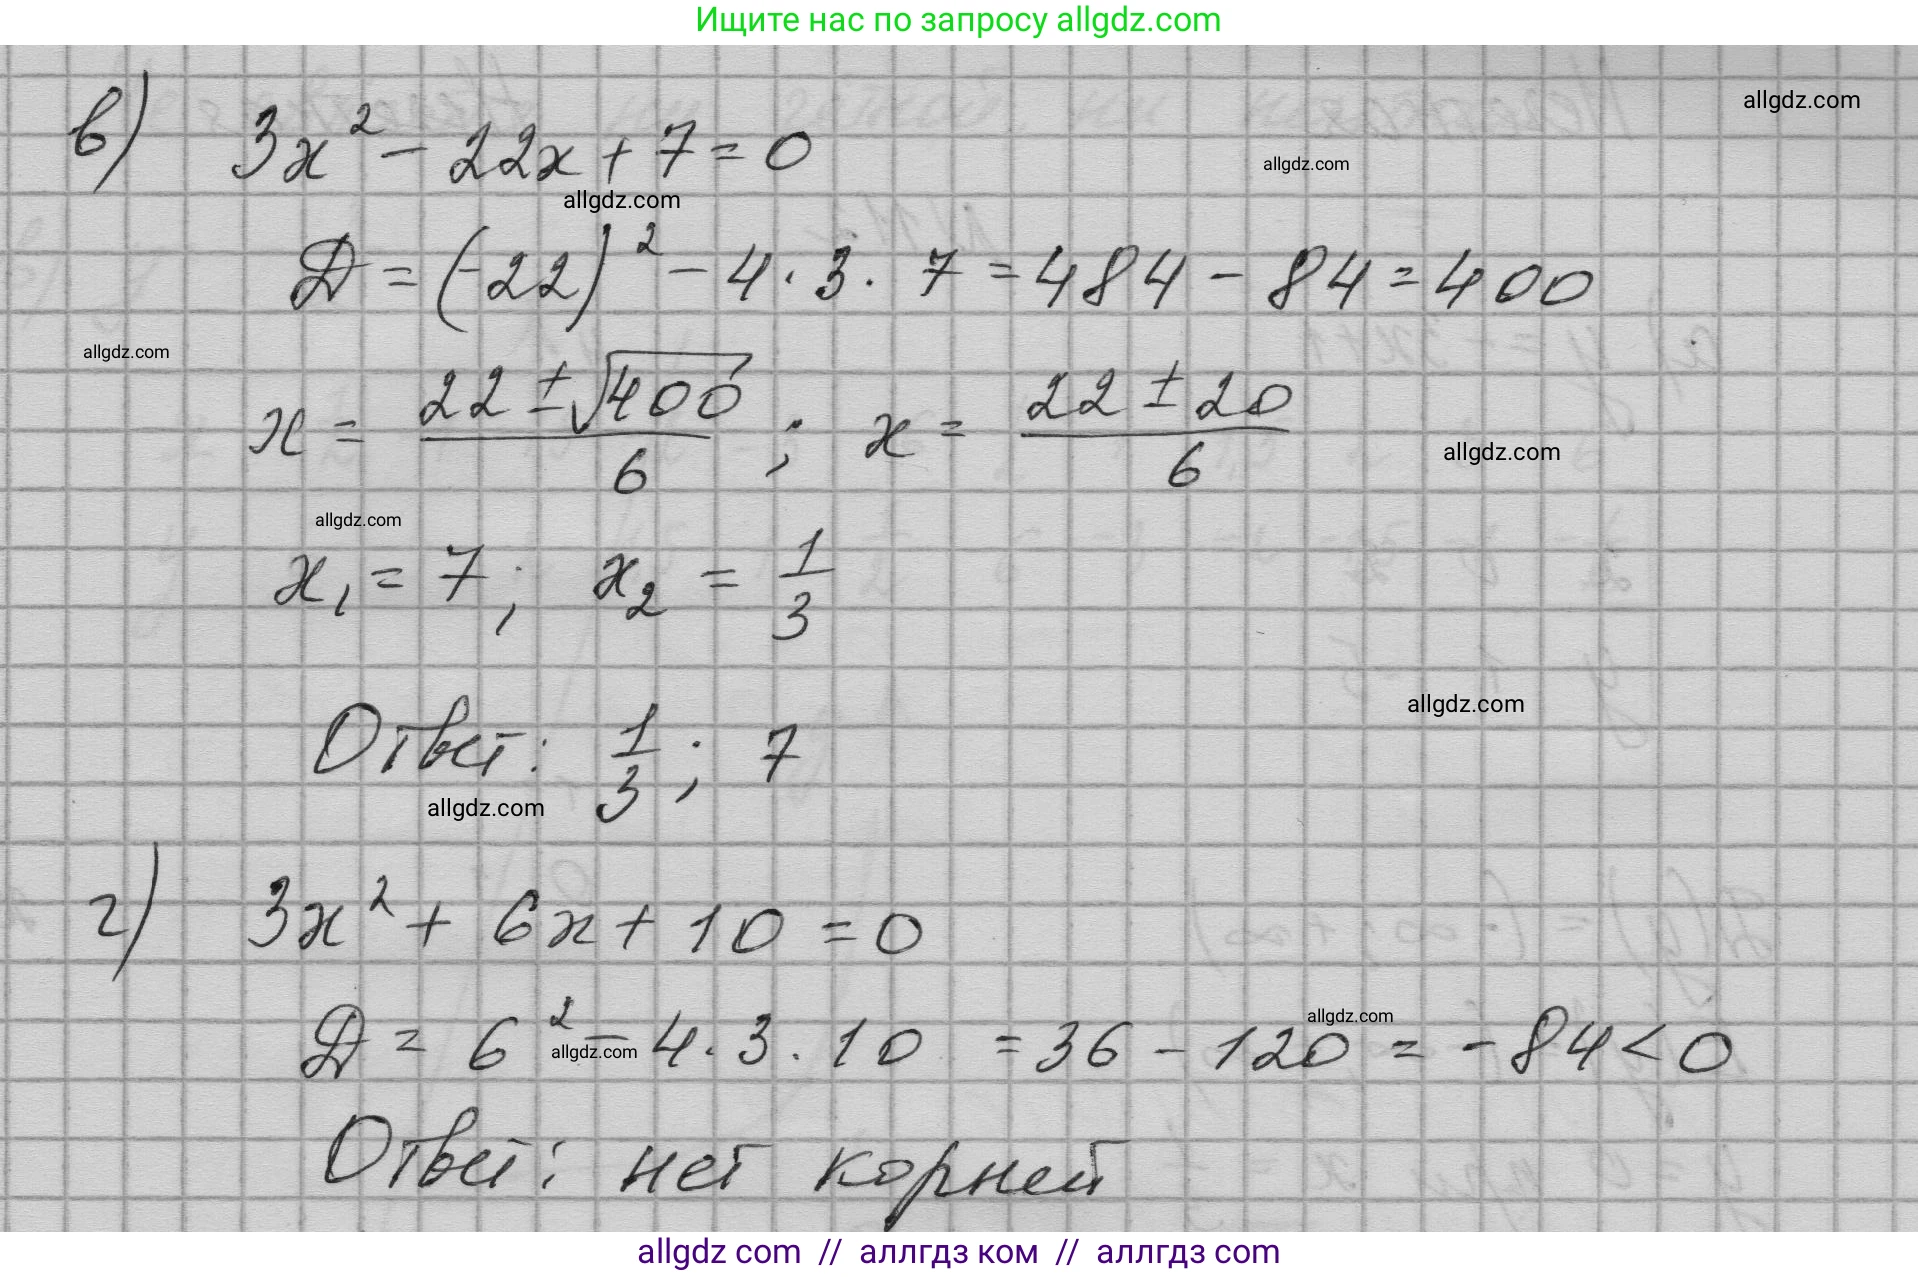 Ищите нас по запросу allgdz.com
allgdz.com
в) 3x² - 22x + 7 = 0
allgdz.com
allgdz.com
D = (-22)² - 4 · 3 · 7 = 484 - 84 = 400
allgdz.com
x = (22 ± √400)/6 ; x = (22 ± 20)/6
allgdz.com
allgdz.com
x₁ = 7; x₂ = 1/3
allgdz.com
Ответ: 1/3; 7
allgdz.com
г) 3x² + 6x + 10 = 0
allgdz.com
D = 6² - 4 · 3 · 10 = 36 - 120 = -84 < 0
allgdz.com
Ответ: нет корней
allgdz com // аллгдз ком // аллгдз com